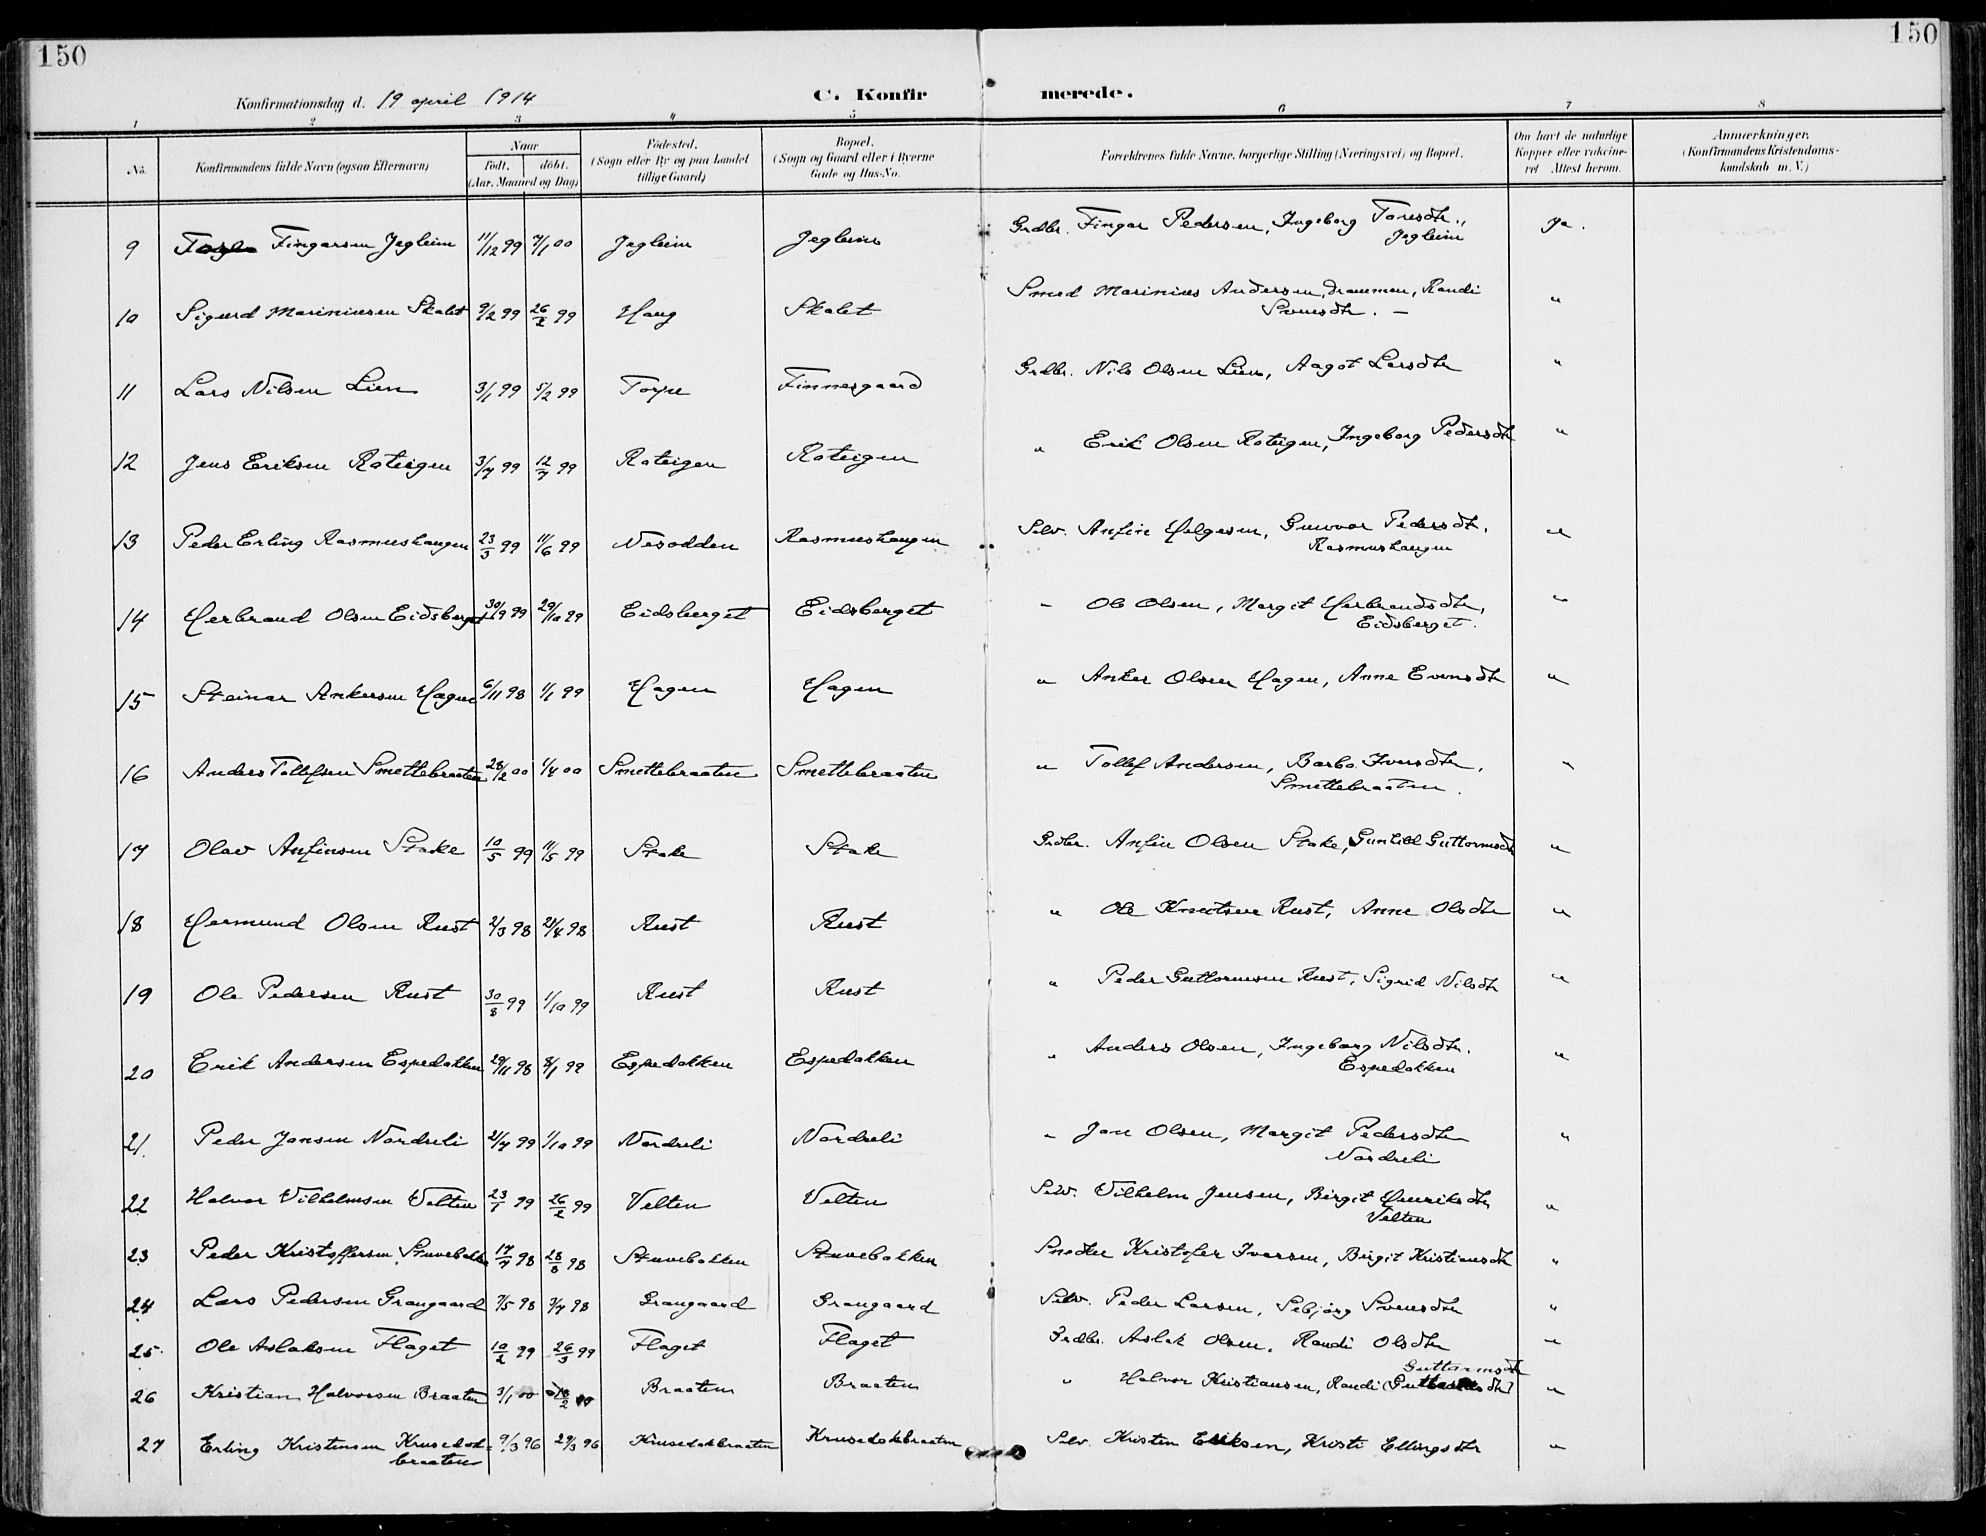 150
150
Konfirmationsdag d. 19 april 1914
C. Konfirmerede.
1 2 3 4 5 6 7 8
No.
Konfirmandens fulde Navn (ogsaa Efternavn)
Naar
født. døbt.
(Aar, Maaned og Dag)
Fødested.
(Sogn eller By og paa Landet
tillige Gaard)
Bopæl.
(Sogn og Gaard eller i Byerne
Gade og Hus-No.
Forældrenes fulde Navne, borgerlige Stilling (Næringsvei) og Bopæl.
Om havt de naturlige
Kopper eller vakcine-
ret Attest herom.
Anmærkninger.
(Konfirmandens Kristendoms-
kundskab m. V.)
9 Fingarsen Jegleim 11/12 99 7/1 00 Jegleim Jegleim Grdbr. Fingar Pedersen, Ingeborg Toresdtr., Ja.
Jegleim
10 Sigurd Mariniusen Skalet 9/2 99 26/2 99 Haug Skalet Smed Marinius Andersen, Drammen, Randi "
Svensdtr. —
11 Lars Nilsen Lien 3/1 99 5/2 99 Torpe Finnesgaard Grdbr. Nils Olsen Lien, Aagot Larsdtr "
12 Jens Eriksen Roteigen 3/7 99 12/7 99 Roteigen Roteigen " Erik Olsen Roteigen, Ingeborg Pedersdtr "
13 Peder Erling Rasmushaugen 23/3 99 11/6 99 Nesodden Rasmushaugen Selv. Anfin Helgesen, Gunvor Pedersdtr. "
Rasmushaugen
14 Herbrand Olsen Eidsberget 30/9 99 29/10 99 Eidsberget Eidsberget " Ole Olsen, Margit Herbrandsdtr, "
Eidsberget.
15 Steinar Ankersen Hagen 6/11 98 1/1 99 Hagen Hagen " Anker Olsen Hagen, Anne Evensdtr "
16 Anders Tollefsen Smettebraaten 28/2 00 1/4 00 Smettebraaten Smettebraaten " Tollef Andersen, Barbo Iversdtr, "
Smettebraaten.
17 Olav Anfinsen Stake 10/5 99 11/5 99 Stake Stake Grdbr. Anfin Olsen Stake, Gunhild Guttormsdtr "
18 Hermund Olsen Rust 2/3 98 21/4 98 Rust Rust " Ole Knutsen Rust, Anne Olsdtr "
19 Ole Pedersen Rust 30/8 99 1/10 99 Rust Rust " Peder Guttormsen Rust, Sigrid Nilsdtr "
20 Erik Andersen Espedokken 29/11 98 8/1 99 Espedokken Espedokken " Anders Olsen, Ingeborg Nilsdtr. "
Espedokken
21. Peder Jansen Nordreli 2/7 99 1/10 99 Nordreli Nordreli " Jan Olsen, Margit Pedersdtr "
Nordreli
22 Halvor Vilhelmsen Velten 23/1 99 26/2 99 Velten Velten Selv. Vilhelm Jensen, Birgit Henriksdtr "
Velten
23 Peder Kristoffersen Stuvebakken 17/7 98 28/8 98 Stuvebakken Stuvebakken Snedker Kristofer Iversen, Birgit Kristiansdtr "
24 Lars Pedersen Graugaard 7/5 98 3/7 98 Graugaard Graugaard Selv. Peder Larsen, Sebjørg Svensdtr "
25. Ole Aslaksen Flaget 10/2 99 26/3 99 Flaget Flaget Grdbr. Aslak Olsen, Randi Olsdtr "
Guttormsdtr
26 Kristian Halvorsen Braaten 3/1 00 18/2 00 Braaten Braaten " Halvor Kristiansen, Randi "
27 Erling Kristensen Krusedok= 9/3 96 29/3 96 Krusedokbraaten Krusedokbraaten Selv. Kristen Eriksen, Kristi Ellingsdtr "
braaten